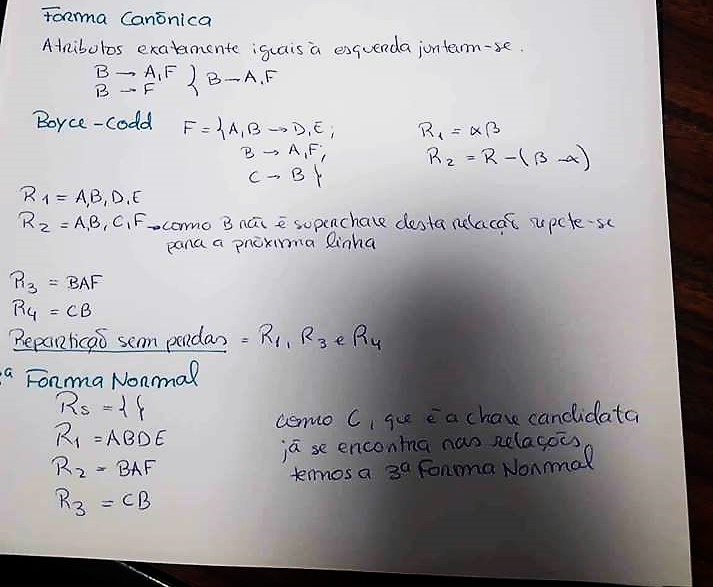 Forma Canónica
Atributos exatamente iguais à esquerda juntam-se.
B → A,F } B → A,F
B → F
Boyce-Codd F = { A,B → D,E; R1 = αβ
B → A,F; R2 = R-(β-α)
C → B }
R1 = A,B,D,E
R2 = A,B,C,F → como B não é superchave desta relação repete-se
para a próxima linha
R3 = BAF
R4 = CB
Repartição sem perdas = R1, R3 e R4
ª Forma Normal
Rs = { }
R1 = ABDE
R2 = BAF
R3 = CB
como C, que é a chave candidata
já se encontra nas relações,
temos a 3ª Forma Normal